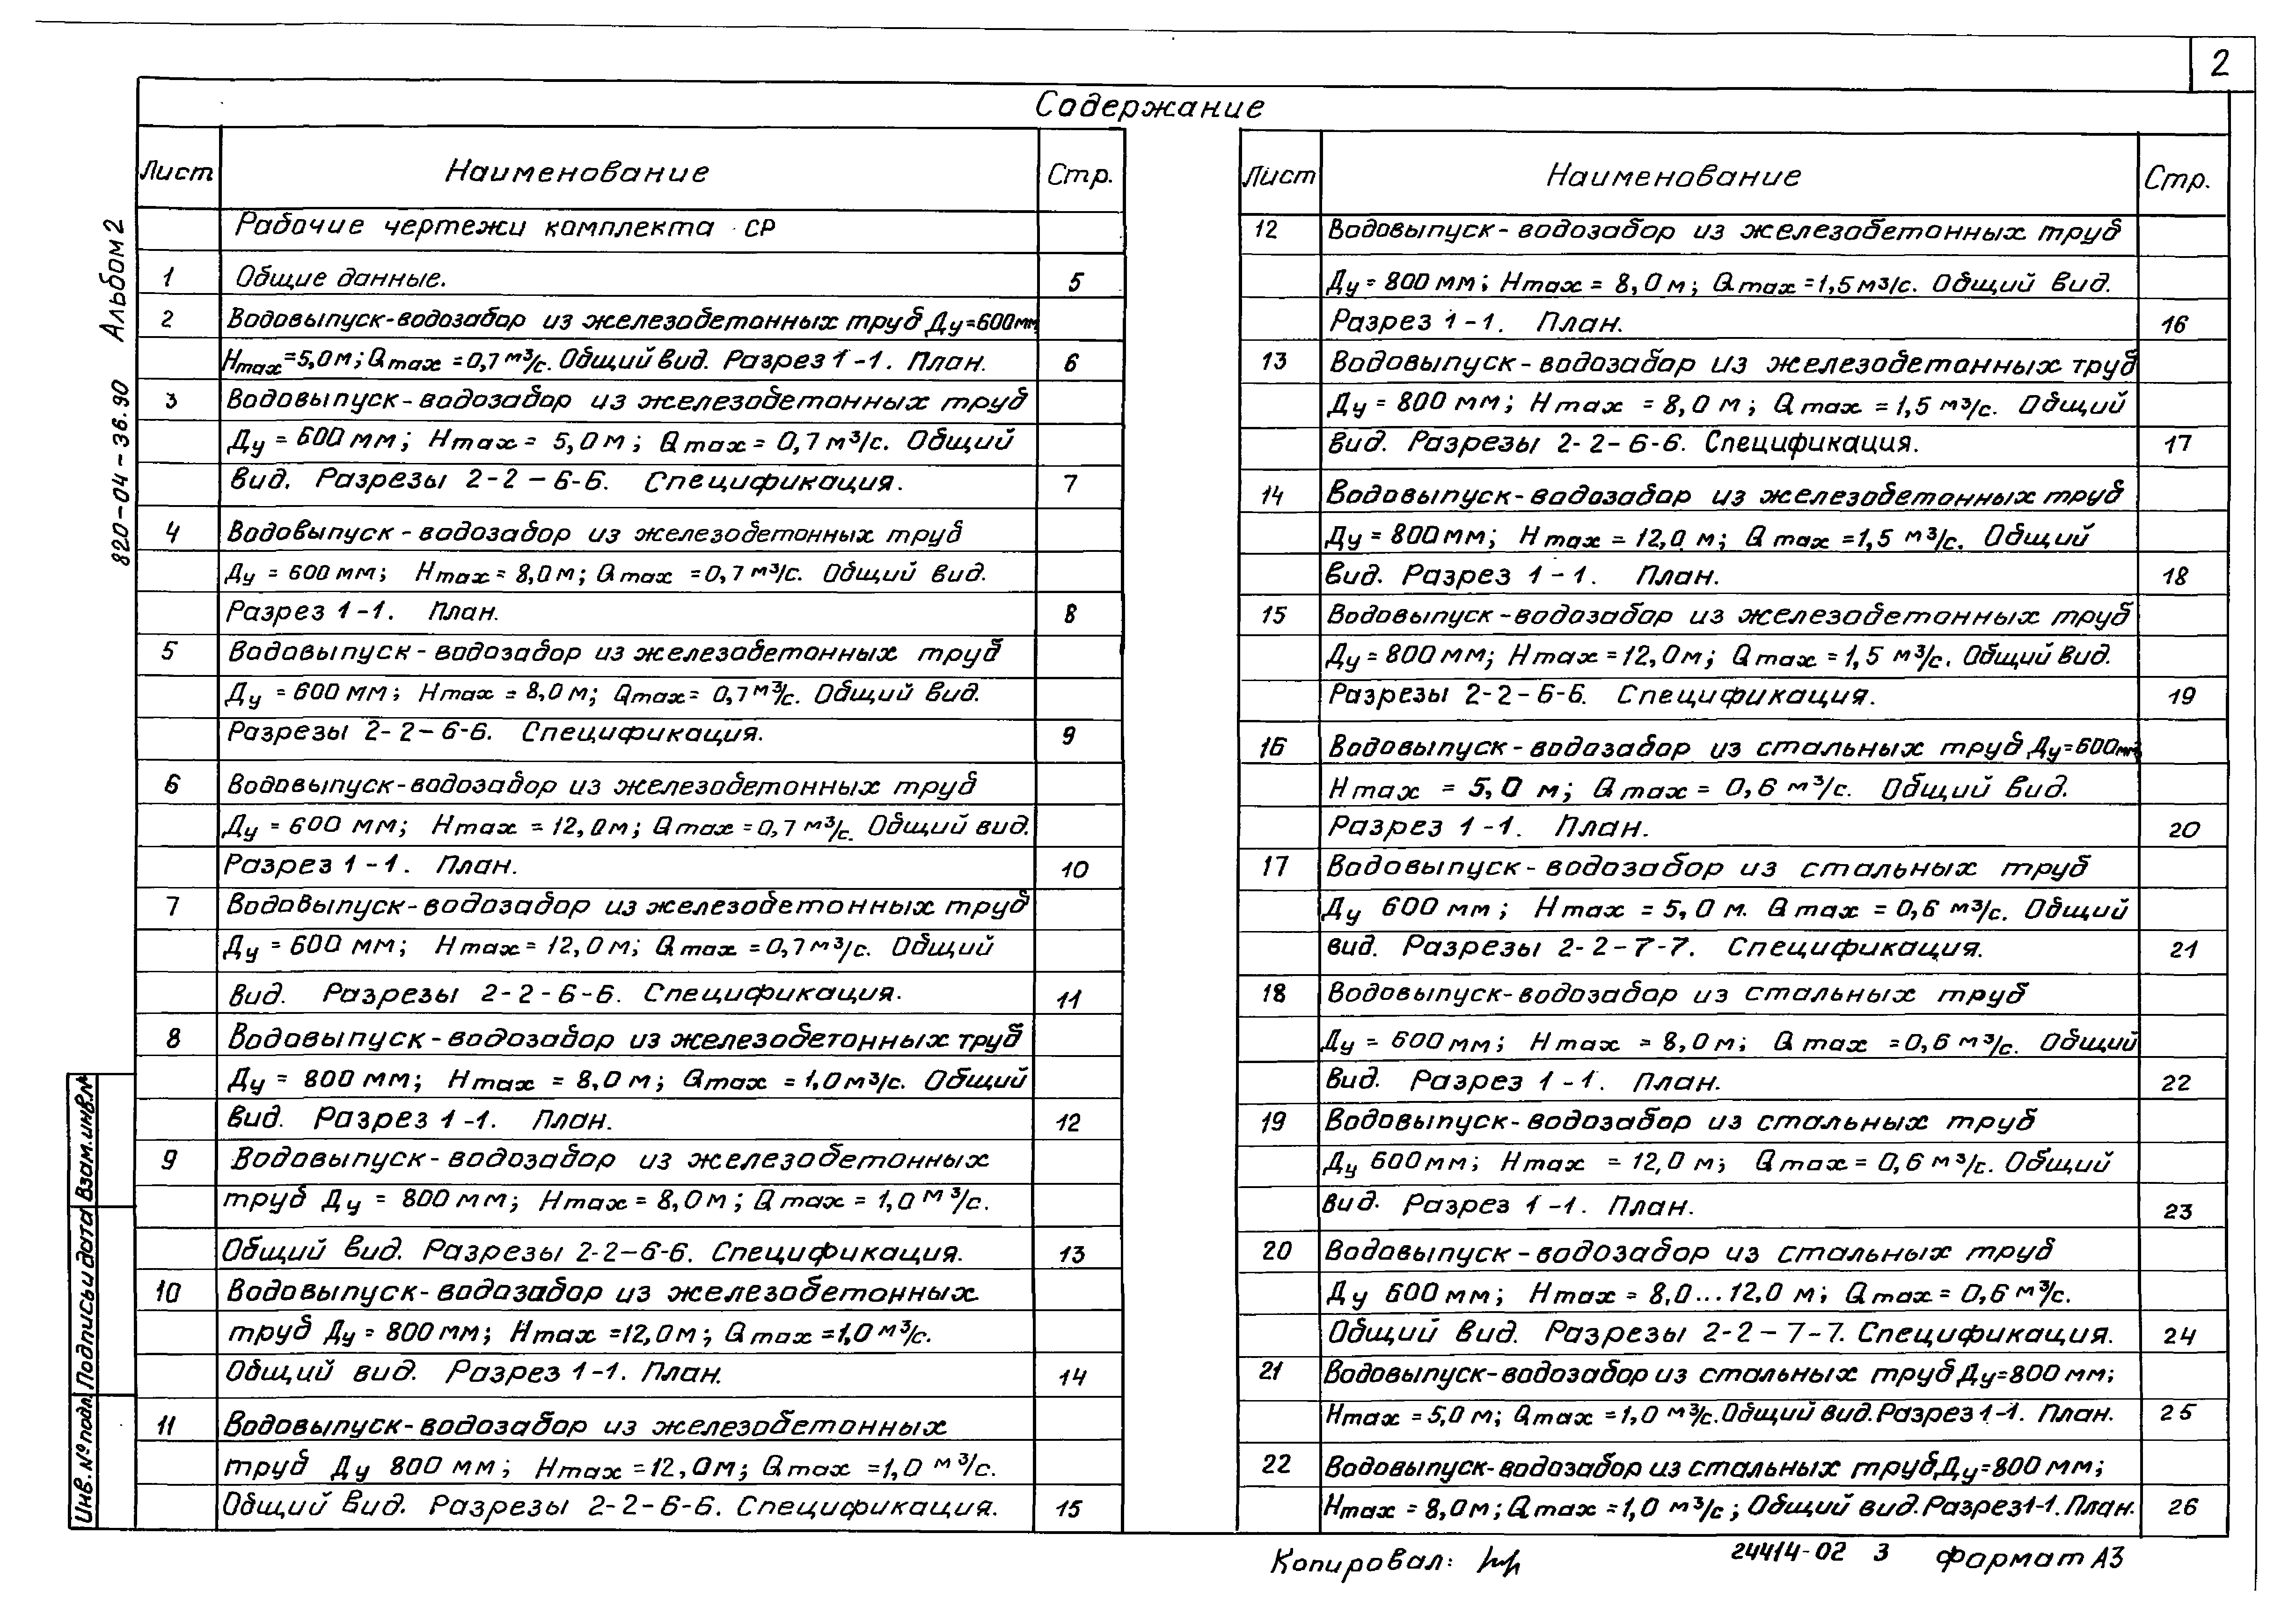 2
Содержание
Лист Наименование Стр.
Рабочие чертежи комплекта СР
1 Общие данные. 5
2 Водовыпуск-водозабор из железобетонных труб Ду=600мм
Hmax=5,0м; Qmax=0,7 м³/с. Общий вид. Разрез 1-1. План. 6
3 Водовыпуск-водозабор из железобетонных труб
Ду = 600 мм; Hmax = 5,0 м; Qmax = 0,7 м³/с. Общий
вид. Разрезы 2-2 – 6-6. Спецификация. 7
4 Водовыпуск-водозабор из железобетонных труб
Ду = 600 мм; Hmax = 8,0 м; Qmax = 0,7 м³/с. Общий вид.
Разрез 1-1. План. 8
5 Водовыпуск-водозабор из железобетонных труб
Ду = 600 мм; Hmax = 8,0 м; Qmax = 0,7 м³/с. Общий вид.
Разрезы 2-2 – 6-6. Спецификация. 9
6 Водовыпуск-водозабор из железобетонных труб
Ду = 600 мм; Hmax = 12,0м; Qmax = 0,7 м³/с. Общий вид.
Разрез 1-1. План. 10
7 Водовыпуск-водозабор из железобетонных труб
Ду = 600 мм; Hmax = 12,0 м; Qmax = 0,7 м³/с. Общий
вид. Разрезы 2-2 – 6-6. Спецификация. 11
8 Водовыпуск-водозабор из железобетонных труб
Ду = 800 мм; Hmax = 8,0 м; Qmax = 1,0 м³/с. Общий
вид. Разрез 1-1. План. 12
9 Водовыпуск-водозабор из железобетонных
труб Ду = 800 мм; Hmax = 8,0 м; Qmax = 1,0 м³/с.
Общий вид. Разрезы 2-2 – 6-6. Спецификация. 13
10 Водовыпуск-водозабор из железобетонных
труб Ду = 800 мм; Hmax = 12,0 м; Qmax = 1,0 м³/с.
Общий вид. Разрез 1-1. План. 14
11 Водовыпуск-водозабор из железобетонных
труб Ду 800 мм; Hmax = 12,0м; Qmax = 1,0 м³/с.
Общий вид. Разрезы 2-2 – 6-6. Спецификация. 15
Лист Наименование Стр.
12 Водовыпуск-водозабор из железобетонных труб
Ду = 800 мм; Hmax = 8,0 м; Qmax = 1,5 м³/с. Общий вид.
Разрез 1-1. План. 16
13 Водовыпуск-водозабор из железобетонных труб
Ду = 800 мм; Hmax = 8,0 м; Qmax = 1,5 м³/с. Общий
вид. Разрезы 2-2 – 6-6. Спецификация. 17
14 Водовыпуск-водозабор из железобетонных труб
Ду = 800мм; Hmax = 12,0 м; Qmax = 1,5 м³/с. Общий
вид. Разрез 1-1. План. 18
15 Водовыпуск-водозабор из железобетонных труб
Ду = 800 мм; Hmax = 12,0м; Qmax = 1,5 м³/с. Общий вид.
Разрезы 2-2 – 6-6. Спецификация. 19
16 Водовыпуск-водозабор из стальных труб Ду=600мм;
Hmax = 5,0 м; Qmax = 0,6 м³/с. Общий вид.
Разрез 1-1. План. 20
17 Водовыпуск-водозабор из стальных труб
Ду 600 мм; Hmax = 5,0 м. Qmax = 0,6 м³/с. Общий
вид. Разрезы 2-2 – 7-7. Спецификация. 21
18 Водовыпуск-водозабор из стальных труб
Ду = 600 мм; Hmax = 8,0 м; Qmax = 0,6 м³/с. Общий
вид. Разрез 1-1. План. 22
19 Водовыпуск-водозабор из стальных труб
Ду 600 мм; Hmax = 12,0 м; Qmax = 0,6 м³/с. Общий
вид. Разрез 1-1. План. 23
20 Водовыпуск-водозабор из стальных труб
Ду 600 мм; Hmax = 8,0...12,0 м; Qmax = 0,6 м³/с.
Общий вид. Разрезы 2-2 – 7-7. Спецификация. 24
21 Водовыпуск-водозабор из стальных труб Ду=800 мм;
Hmax = 5,0 м; Qmax = 1,0 м³/с. Общий вид. Разрез 1-1. План. 25
22 Водовыпуск-водозабор из стальных труб Ду=800 мм;
Hmax = 8,0м; Qmax = 1,0 м³/с; Общий вид. Разрез 1-1. План. 26
820-04-36.90 Альбом 2
Взам.инв.№
Подпись и дата
Инв.№ подл.
Копировал:
24414-02 3 Формат А3